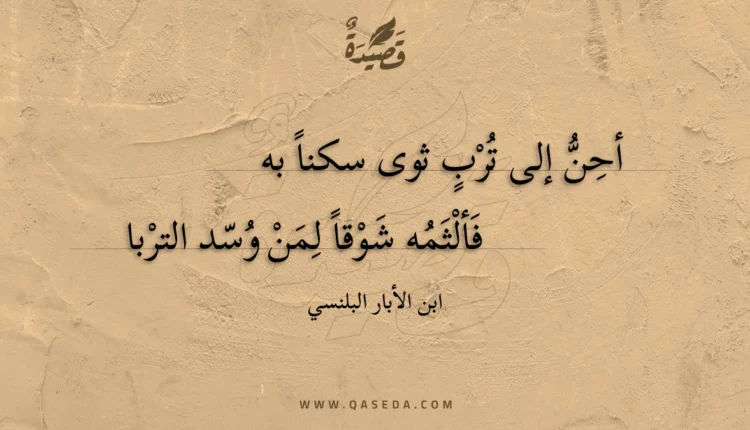 قَصِيدَةٌ
أحِنُّ إلى تُرْبٍ ثوى سكناً به
فَألْثَمُه شَوْقاً لِمَنْ وُسّد الترْبا
ابن الأبار البلنسي
WWW.QASEDA.COM